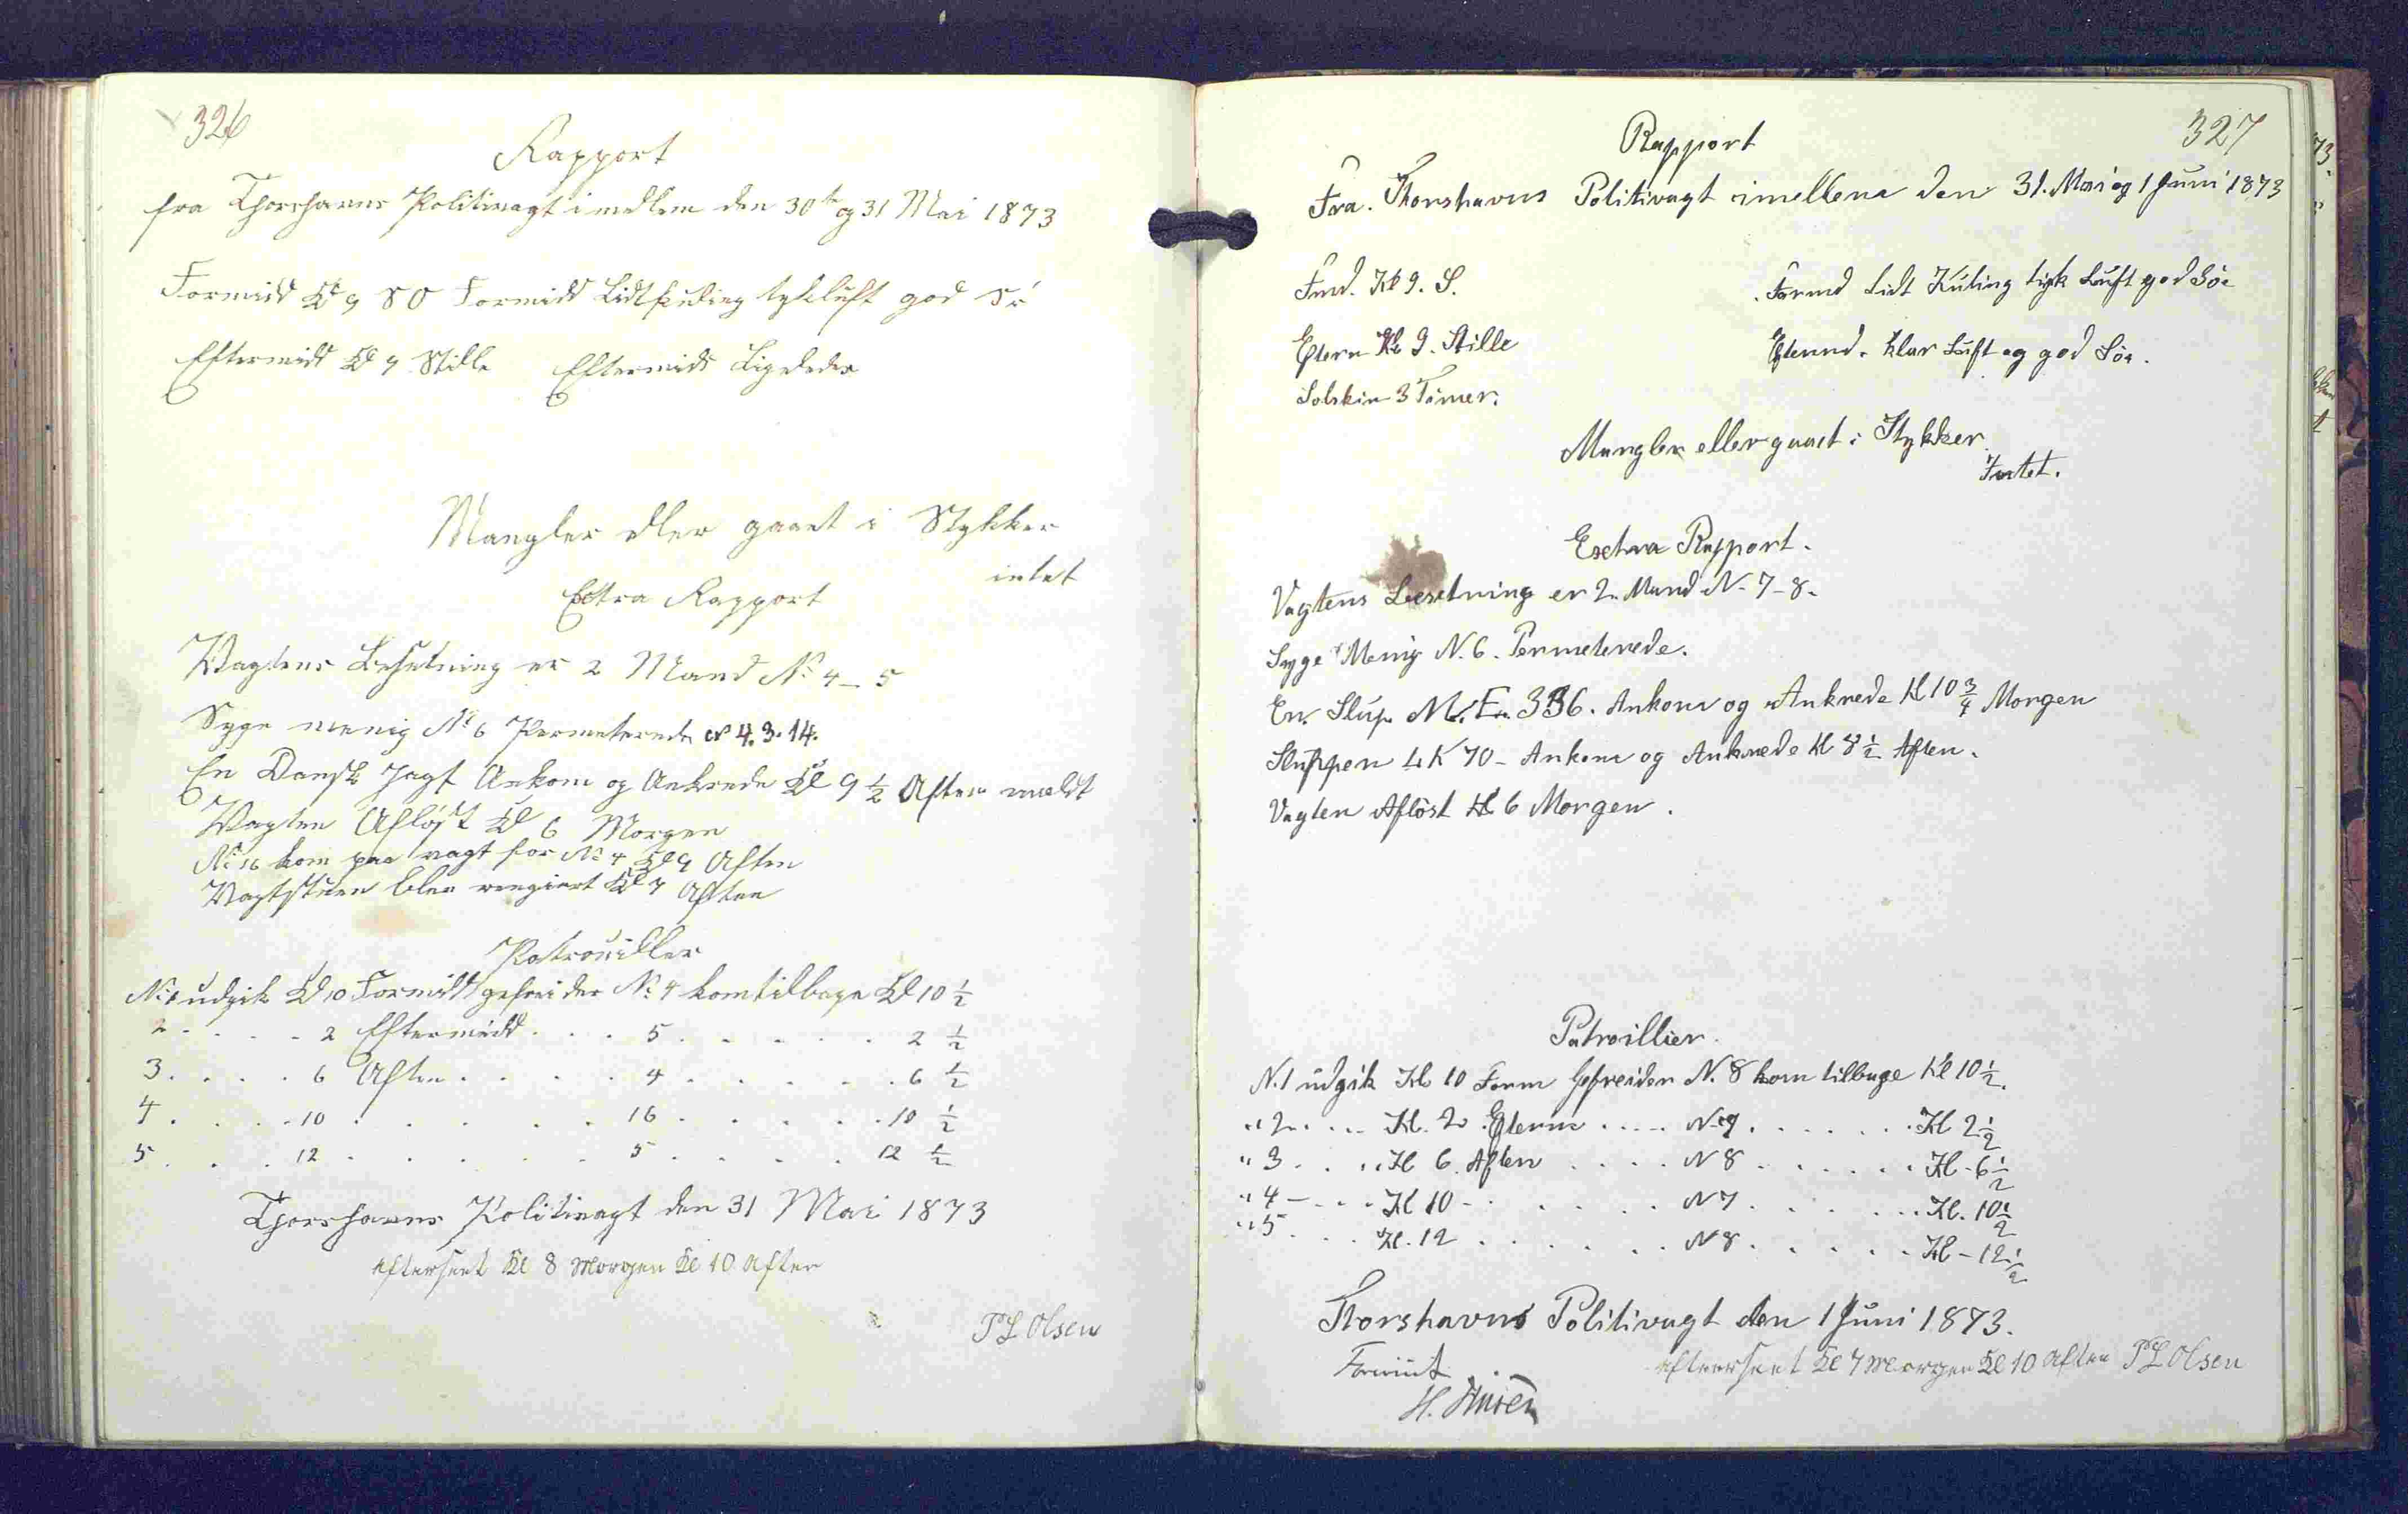 326
Rapport
fra Thorshavns Politivagt imellem den 30te og 31 Mai 1873
Formidd Kl 9 SO Formidd Lidt kuling tykluft god Sö
Eftermidd Kl 9 Stille Eftermidd Ligeledes
Mangler eller gaaet i Stykker
intet
Extra Rapport
Vagtens Besetning er 2 Mand No 4-5
Syge menig No 6 Permeterede 4.3.14.
En Dansk Jagt Ankom og Ankrede Kl 9 1/2 Aften meldt
Vagten Aflöst Kl 6 Morgen
No 16 kom paa vagt for No 4 Kl 9 Aften
Vagtstuen blev rengiort Kl 7 Aften
Patrouiller
No 1 udgik Kl 10 Formidd gefreider No 4 kom tilbage Kl 10 1/2
2 . . . . 2 Eftermidd . . . 5 . . . . . 2 1/2
3 . . . . 6 Aften . . . . 4 . . . . . 6 1/2
4 . . . . 10 . . . . . 16 . . . . . 10 1/2
5 . . . 12 . . . . . 5 . . . . 12 1/2
Thorshavns Politivagt den 31 Mai 1873
Efterseet Kl 8 Morgen Kl 10 Aften
P L Olsen
327
Rapport
Fra. Thorshavns Politivagt imellem den 31. Mai og 1 Juni 1873
Fmd. Kl 9. S. Formd Lidt Kuling tyk Luft god Söe
Efterm Kl 9. Stille Eftermd. klar Luft og god Söe.
Solskin 3 Timer.
Mangler eller gaaet i Stykker
Intet.
Exstra Rapport.
Vagtens Besetning er 2. Mand N. 7-8.
Syge Menig N. 6. Permeterede.
En. Slup M. E. 336. Ankom og Ankrede Kl 10 3/4 Morgen
Sluppen LK 70 - Ankom og Ankrede Kl 8 1/2 Aften.
Vagten Aflöst Kl 6 Morgen.
Patroillier.
N. 1 udgik Kl 10 Form Gefreider N. 8 kom tilbage Kl 10 1/2.
" 2 . . . . Kl. 2 Efterm . . . . N 7 . . . . . . Kl 2 1/2
" 3 . . . . Kl 6. Aften . . . . N 8 . . . . . . Kl - 6 1/2
" 4 - . . . Kl 10 - . . . . . N 7 . . . . . . Kl. 10 1/2
" 5 . . . Kl. 12 . . . . . . N 8 . . . . . Kl - 12 1/2
Thorshavns Politivagt den 1 Juni 1873.
Efterseet Kl 7 Morgen Kl 10 Aften P L Olsen
H.